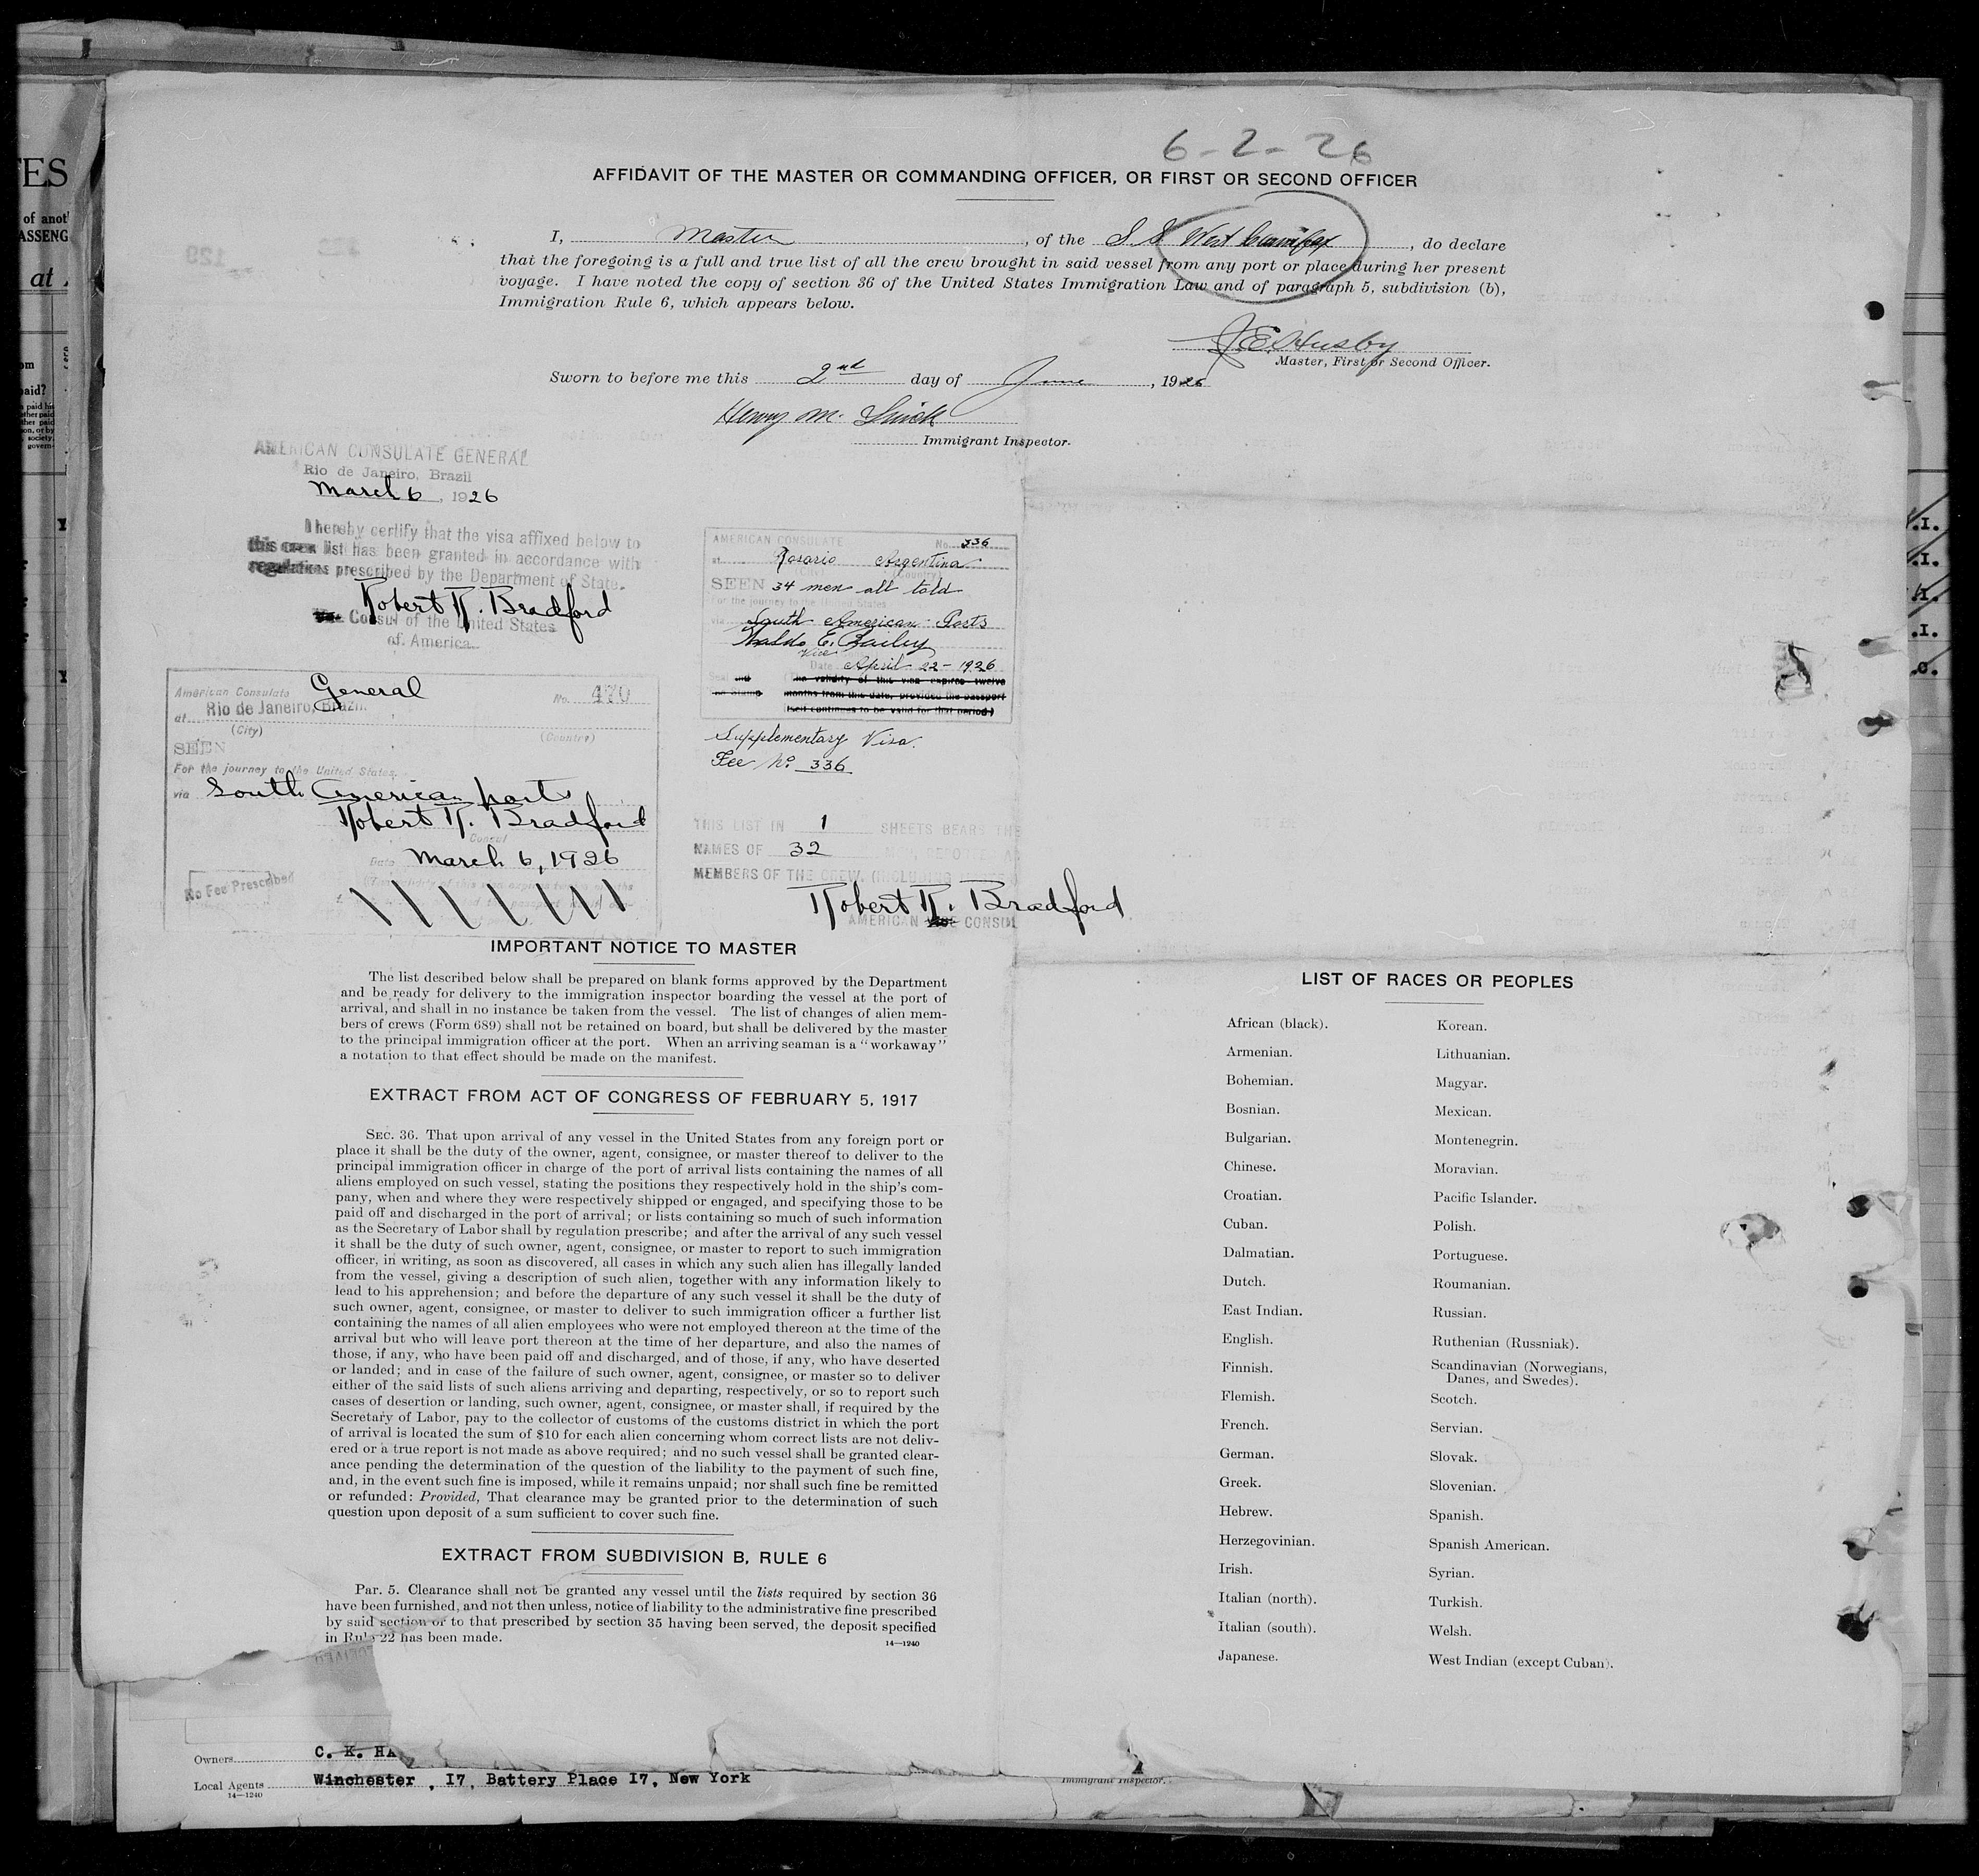 6-2-26
AFFIDAVIT OF THE MASTER OR COMMANDING OFFICER, OR FIRST OR SECOND OFFICER
I, Master, of the S.S. West, do declare
that the foregoing is a full and true list of all the crew brought in said vessel from any port or place during her present
voyage. I have noted the copy of section 36 of the United States Immigration Law and of paragraph 5, subdivision (b),
Immigration Rule 6, which appears below.
J.E. Husby
Master, First or Second Officer.
Sworn to before me this 2nd day of June, 1926
Henry M.
Immigrant Inspector.
AMERICAN CONSULATE GENERAL
Rio de Janeiro, Brazil
March 6, 1926
I hereby certify that the visa affixed below to
this crew list has been granted in accordance with
regulations prescribed by the Department of State.
Robert R. Bradford
Consul of the United States
of America.
American Consulate General No. 470
at Rio de Janeiro, Brazil.
(City) (Country)
SEEN
For the journey to the United States.
via South American ports
Robert R. Bradford
Consul
Date March 6, 1926
No Fee Prescribed
AMERICAN CONSULATE No. 336
at Rosario Argentina
(City) (Country)
SEEN 34 men all told
For the journey to the United States
via South American Ports
E. Bailey
Vice
Date April 22-1926
the validity of this visa expires twelve
months from this date, provided the passport
itself continues to be valid for that period)
Supplementary Visa.
Fee No. 336
THIS LIST IN 1 SHEETS BEARS THE
NAMES OF 32
MEMBERS OF THE CREW. (INCLUDING
Robert R. Bradford
AMERICAN VICE CONSUL
IMPORTANT NOTICE TO MASTER
The list described below shall be prepared on blank forms approved by the Department
and be ready for delivery to the immigration inspector boarding the vessel at the port of
arrival, and shall in no instance be taken from the vessel. The list of changes of alien mem-
bers of crews (Form 689) shall not be retained on board, but shall be delivered by the master
to the principal immigration officer at the port. When an arriving seaman is a "workaway"
a notation to that effect should be made on the manifest.
EXTRACT FROM ACT OF CONGRESS OF FEBRUARY 5, 1917
SEC. 36. That upon arrival of any vessel in the United States from any foreign port or
place it shall be the duty of the owner, agent, consignee, or master thereof to deliver to the
principal immigration officer in charge of the port of arrival lists containing the names of all
aliens employed on such vessel, stating the positions they respectively hold in the ship's com-
pany, when and where they were respectively shipped or engaged, and specifying those to be
paid off and discharged in the port of arrival; or lists containing so much of such information
as the Secretary of Labor shall by regulation prescribe; and after the arrival of any such vessel
it shall be the duty of such owner, agent, consignee, or master to report to such immigration
officer, in writing, as soon as discovered, all cases in which any such alien has illegally landed
from the vessel, giving a description of such alien, together with any information likely to
lead to his apprehension; and before the departure of any such vessel it shall be the duty of
such owner, agent, consignee, or master to deliver to such immigration officer a further list
containing the names of all alien employees who were not employed thereon at the time of the
arrival but who will leave port thereon at the time of her departure, and also the names of
those, if any, who have been paid off and discharged, and of those, if any, who have deserted
or landed; and in case of the failure of such owner, agent, consignee, or master so to deliver
either of the said lists of such aliens arriving and departing, respectively, or so to report such
cases of desertion or landing, such owner, agent, consignee, or master shall, if required by the
Secretary of Labor, pay to the collector of customs of the customs district in which the port
of arrival is located the sum of $10 for each alien concerning whom correct lists are not deliv-
ered or a true report is not made as above required; and no such vessel shall be granted clear-
ance pending the determination of the question of the liability to the payment of such fine,
and, in the event such fine is imposed, while it remains unpaid; nor shall such fine be remitted
or refunded: Provided, That clearance may be granted prior to the determination of such
question upon deposit of a sum sufficient to cover such fine.
EXTRACT FROM SUBDIVISION B, RULE 6
Par. 5. Clearance shall not be granted any vessel until the lists required by section 36
have been furnished, and not then unless, notice of liability to the administrative fine prescribed
by said section or to that prescribed by section 35 having been served, the deposit specified
in Rule 22 has been made.
14—1240
LIST OF RACES OR PEOPLES
African (black). Korean.
Armenian. Lithuanian.
Bohemian. Magyar.
Bosnian. Mexican.
Bulgarian. Montenegrin.
Chinese. Moravian.
Croatian. Pacific Islander.
Cuban. Polish.
Dalmatian. Portuguese.
Dutch. Roumanian.
East Indian. Russian.
English. Ruthenian (Russniak).
Finnish. Scandinavian (Norwegians,
Danes, and Swedes).
Flemish. Scotch.
French. Servian.
German. Slovak.
Greek. Slovenian.
Hebrew. Spanish.
Herzegovinian. Spanish American.
Irish. Syrian.
Italian (north). Turkish.
Italian (south). Welsh.
Japanese. West Indian (except Cuban).
Owners C. K. HA
Local Agents Winchester, 17, Battery Place 17, New York
14—1240
Immigrant Inspector.